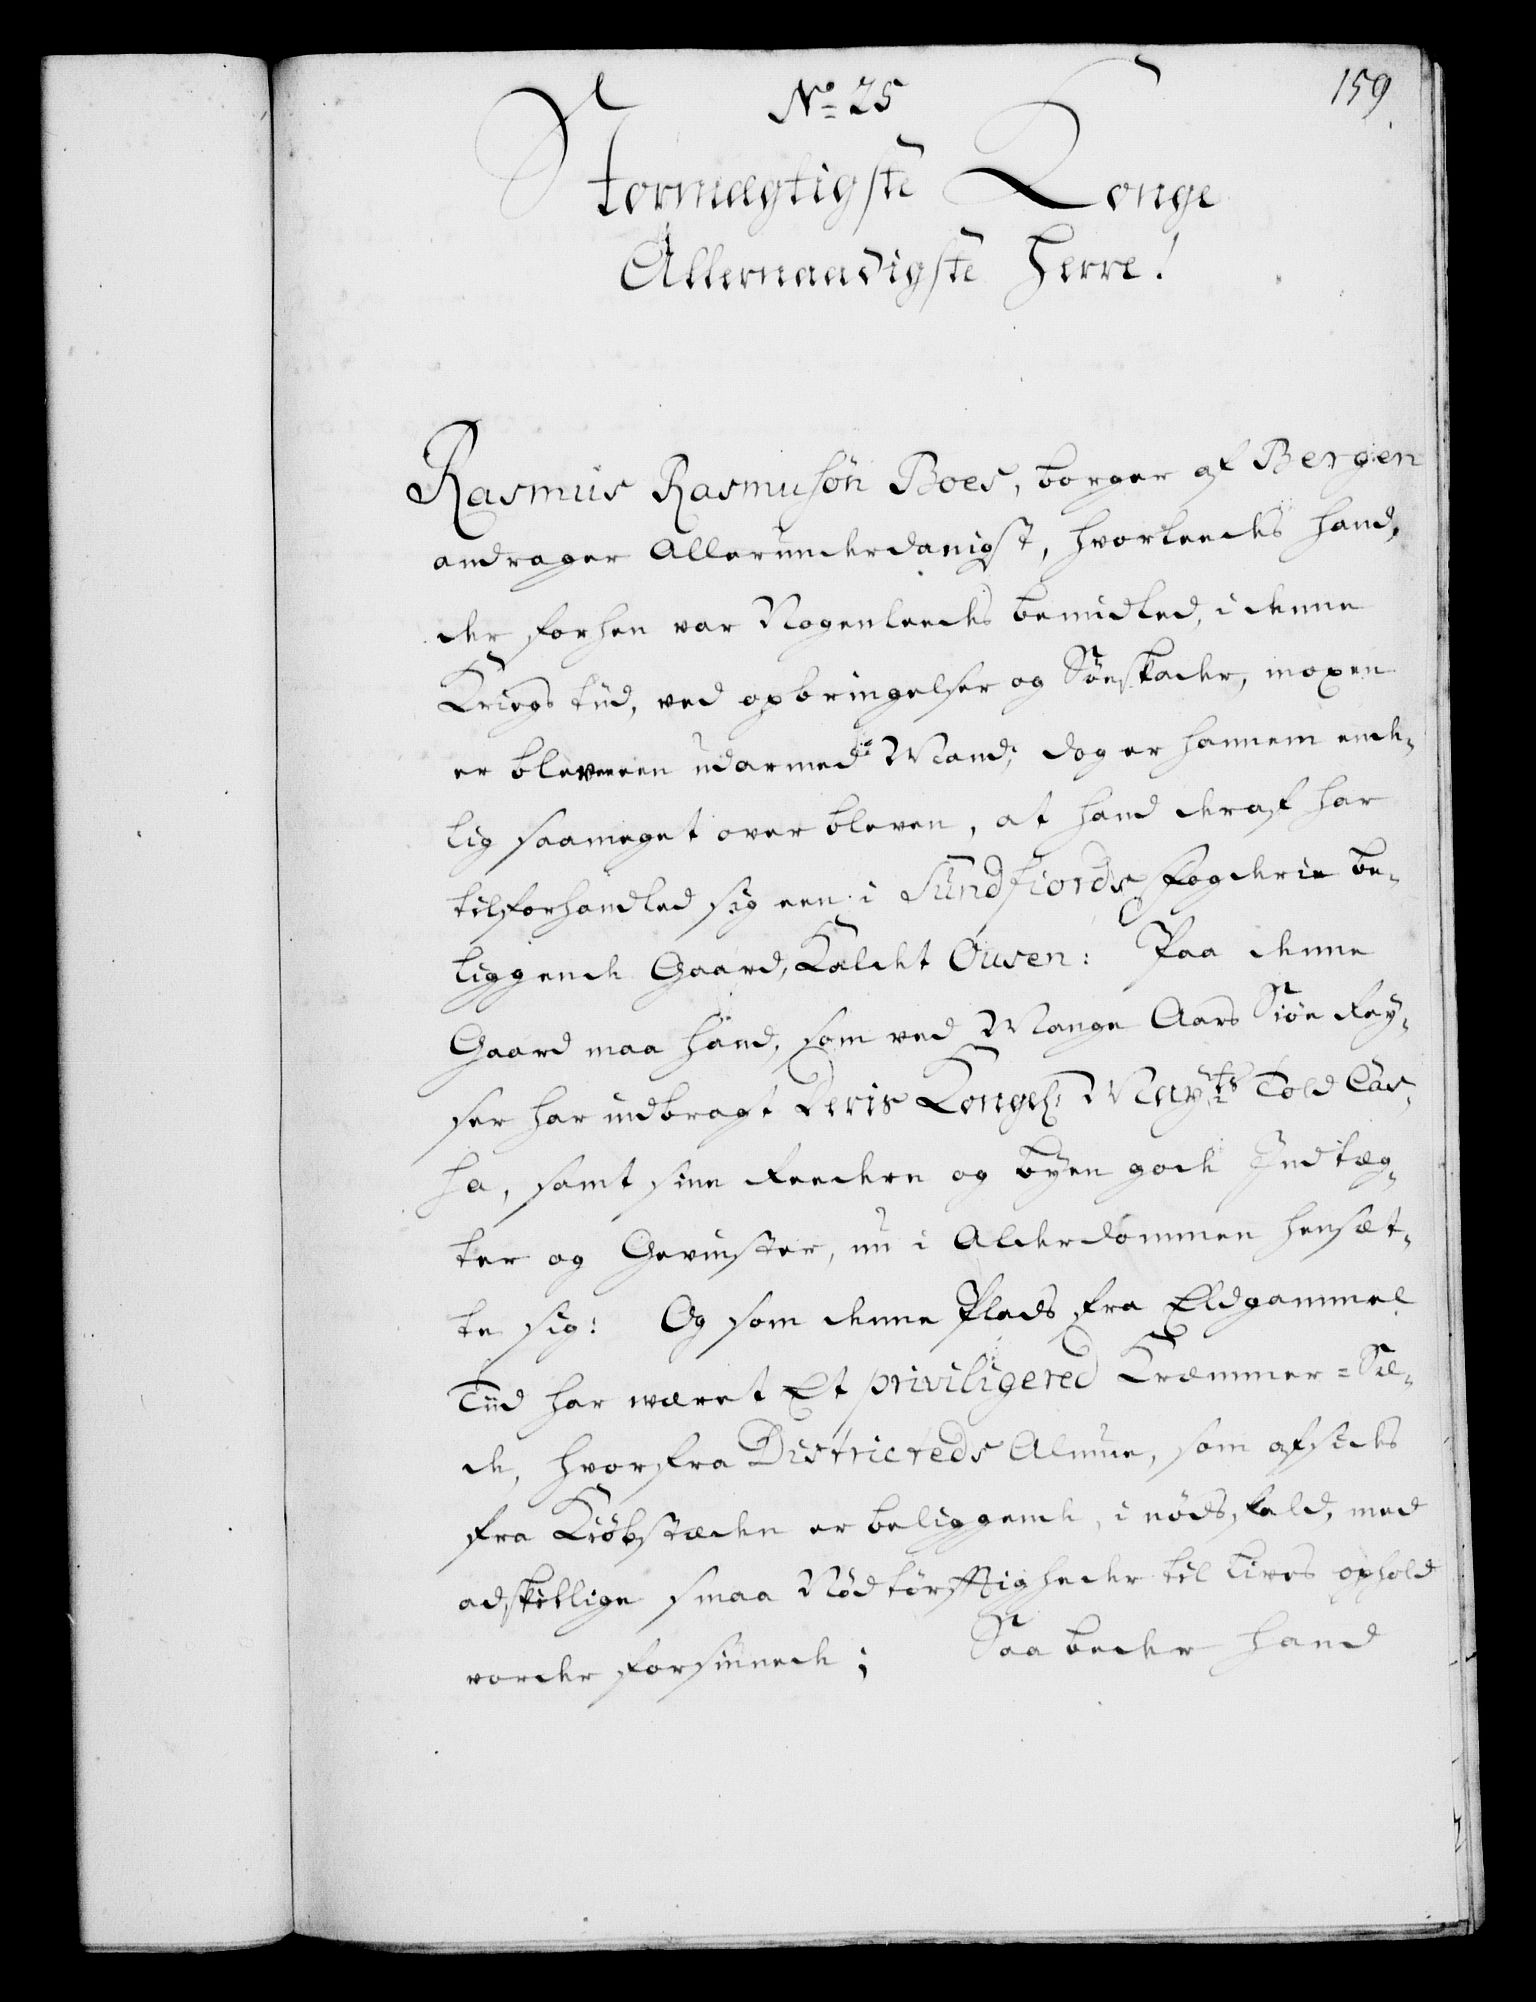 159.
No 25
Stormægtigste Konge
Allernaadigste Herre!
Rasmus Rasmusøn Boes, borger af Bergen
andrager Allerunderdanigst, hvorleedes hand,
der forhen var Nogenleedes bemidled, i denne
Kriegs tiid, ved opbringelser og Søeskader, moxen
er bleven een udarmed Mand; dog er hannem ende-
lig saameget over bleven, at hand deraf har
tilforhandled sig een i Sundfiords fogderie be-
liggende Gaard, Kaldet Ousen: Paa denne
Gaard maa hand, som ved Mange Aars Siøe Rey-
ser har indbragt Deris Kongel: Mayts Told Cas-
ha, samt sine Reedere og byen gode Indtæg-
ter og Gevinster, nu i Alderdommen hensæt-
te sig: Og som denne Plads fra Eldgammel
Tiid har været Et priviligered Kræmmer-Sæ-
de, hvorfra Districteds Almue, som afsides
fra Kiøbstæden er beliggende, i nøds fald, med
adskillige smaa Nødtørfftigheder til livs ophold
vorder forsiunede; Saa beder hand